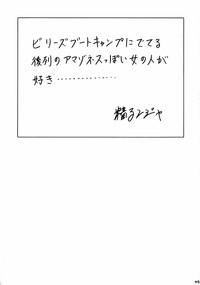 ビリーズブートキャンプにでてる
後列のアマゾネスっぽい女の人が
好き……………